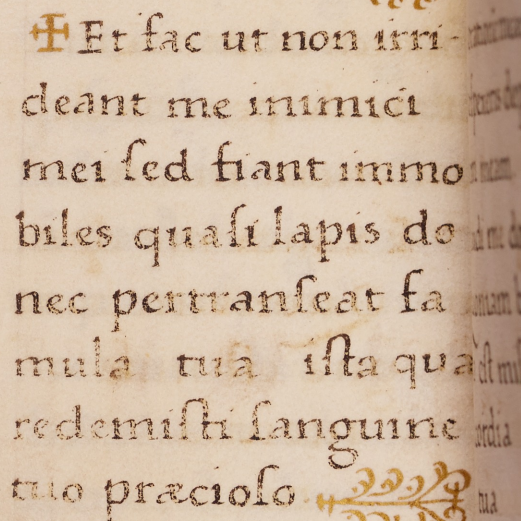 ✠ Et fac ut non irri-
deant me inimici
mei ſed fiant immo
biles quaſi lapis do
nec pertranſeat fa
mula tua iſta qua
redemiſti ſanguine
tuo præcioſo